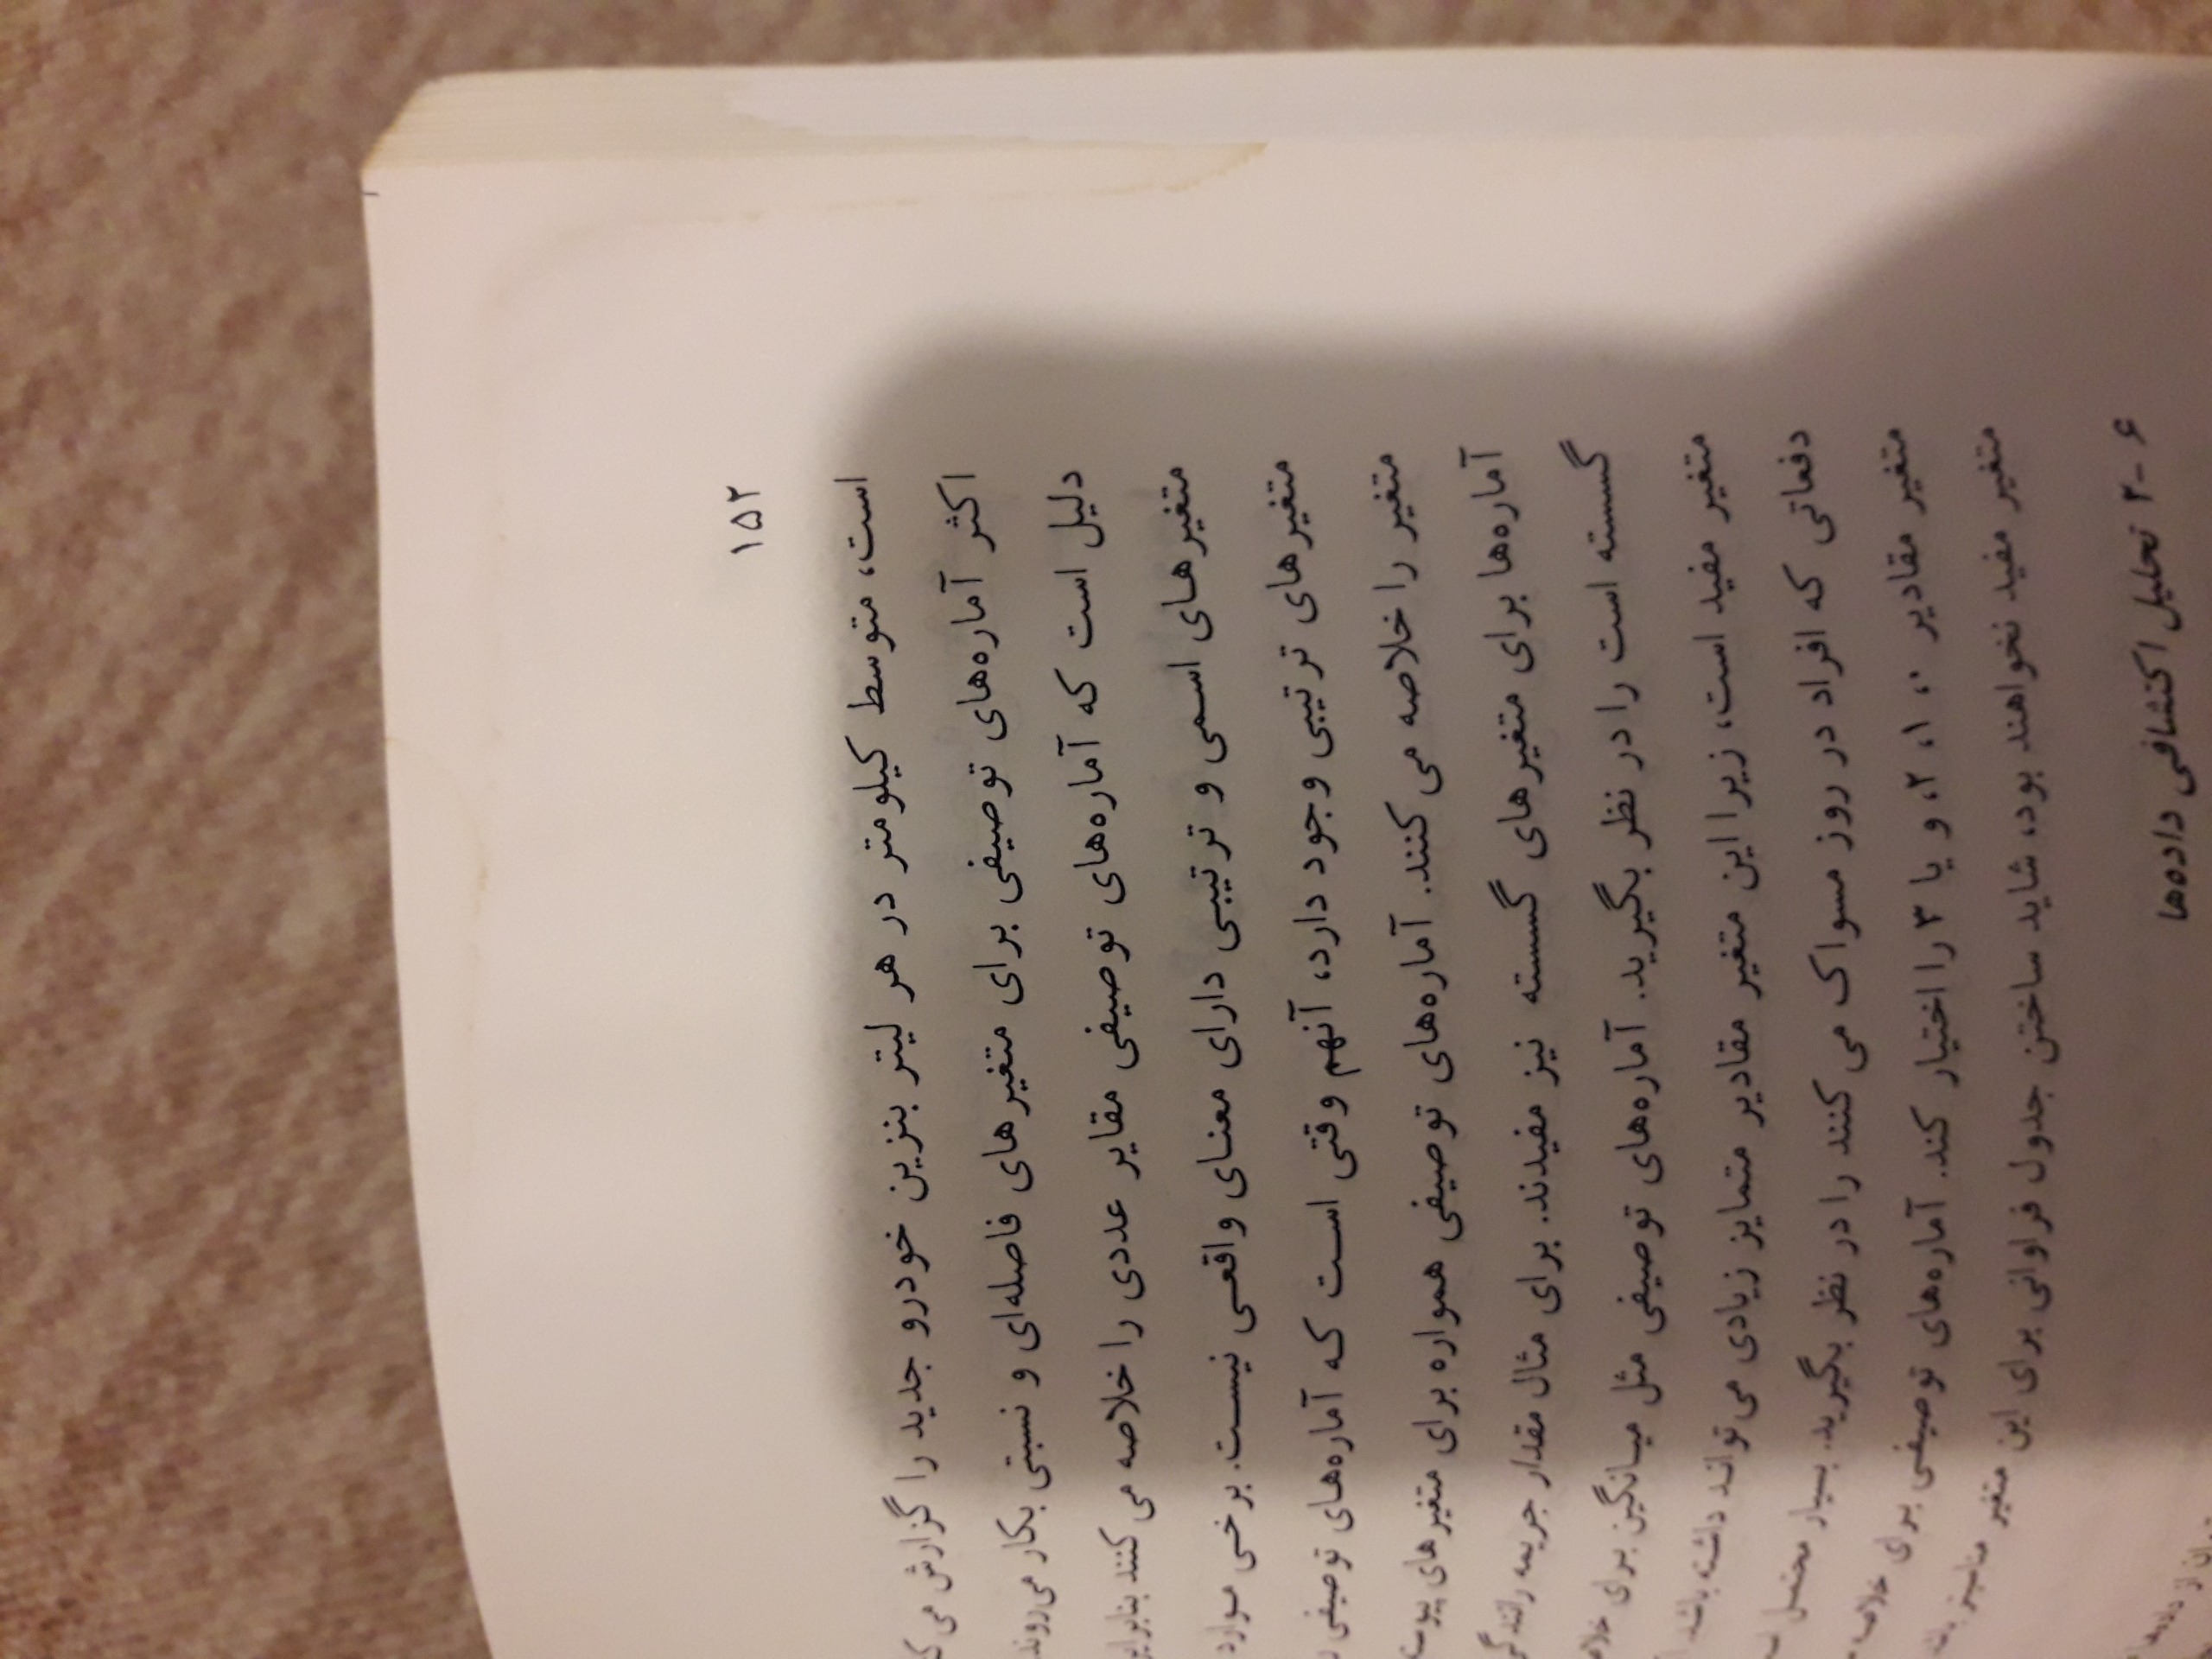 ۱۵۲
است، متوسط کیلومتر در هر لیتر بنزین خودرو جدید را گزارش می
اکثر آماره‌های توصیفی برای متغیرهای فاصله‌ای و نسبتی بکار می‌روند
دلیل است که آماره‌های توصیفی مقایر عددی را خلاصه می کنند
متغیرهای اسمی و ترتیبی دارای معنای واقعی نیست. برخی موارد
متغیرهای ترتیبی وجود دارد، آنهم وقتی است که آماره‌های توصیفی
متغیر را خلاصه می کنند. آماره‌های توصیفی همواره برای متغیرهای
آماره‌ها برای متغیرهای گسسته نیز مفیدند. برای مثال مقدار جریمه
گسسته است را در نظر بگیرید. آماره‌های توصیفی مثل میانگین برای
متغیر مفید است، زیرا این متغیر مقادیر متمایز زیادی می تواند داشته باشد.
دفعاتی که افراد در روز مسواک می کنند را در نظر بگیرید. بسیار محتمل
متغیر مقادیر ۰، ۱، ۲، و یا ۳ را اختیار کند. آماره‌های توصیفی برای
متغیر مفید نخواهند بود، شاید ساختن جدول فراوانی برای این متغیر
۶-۳ تحلیل اکتشافی داده‌ها